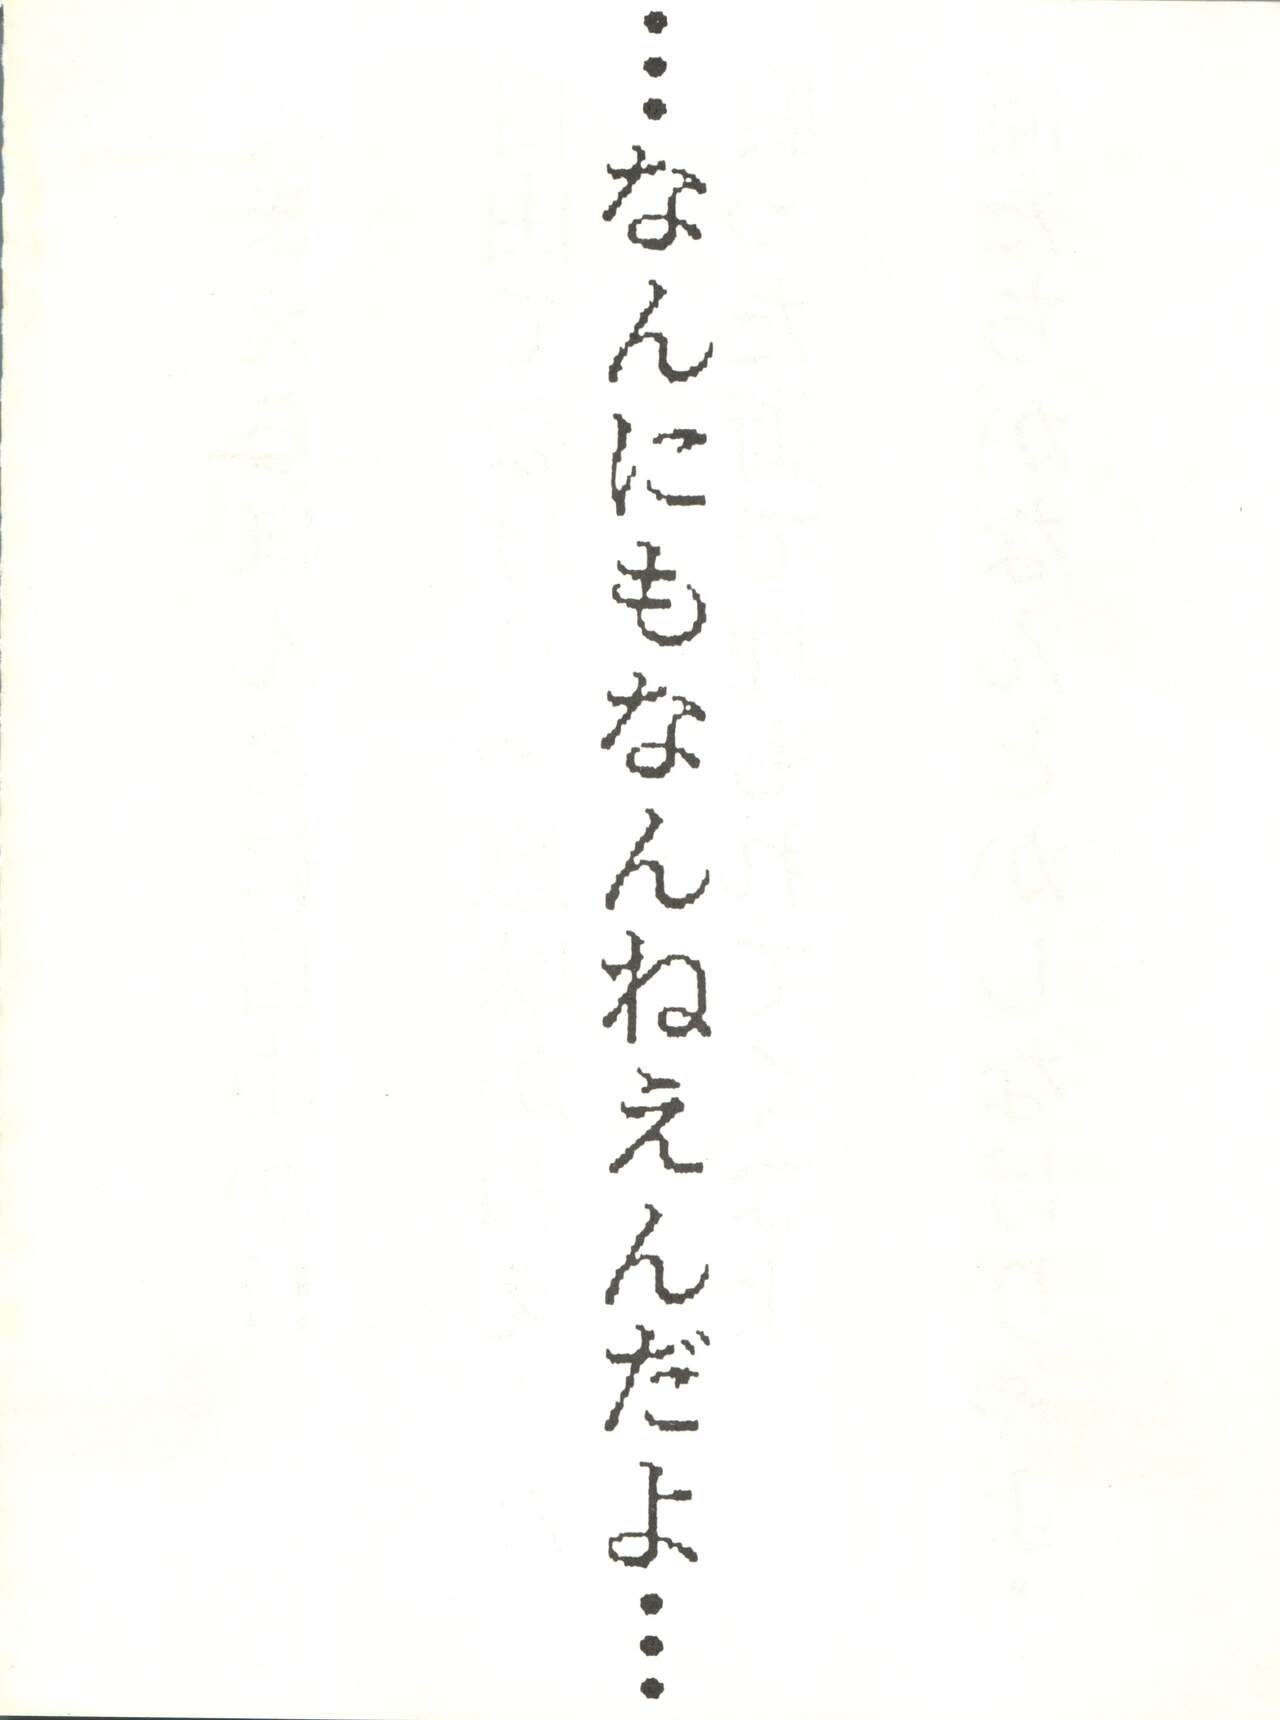 …なんにもなんねえんだよ…